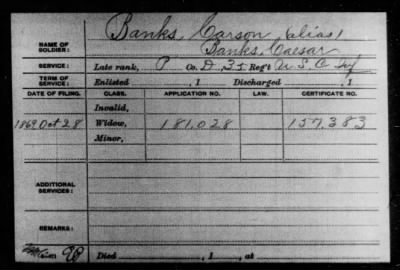 NAME OF SOLDIER: Banks, Carson (alias)
Banks, Caesar
SERVICE: Late rank, P Co. D, 35 Reg't U.S.C. Inf
TERM OF SERVICE: Enlisted , 1 Discharged , 1
DATE OF FILING. CLASS. APPLICATION NO. LAW. CERTIFICATE NO.
Invalid,
1869 Oct 28 Widow, 181,028 157,383
Minor,
ADDITIONAL SERVICES:
REMARKS:
Died , 1 , at